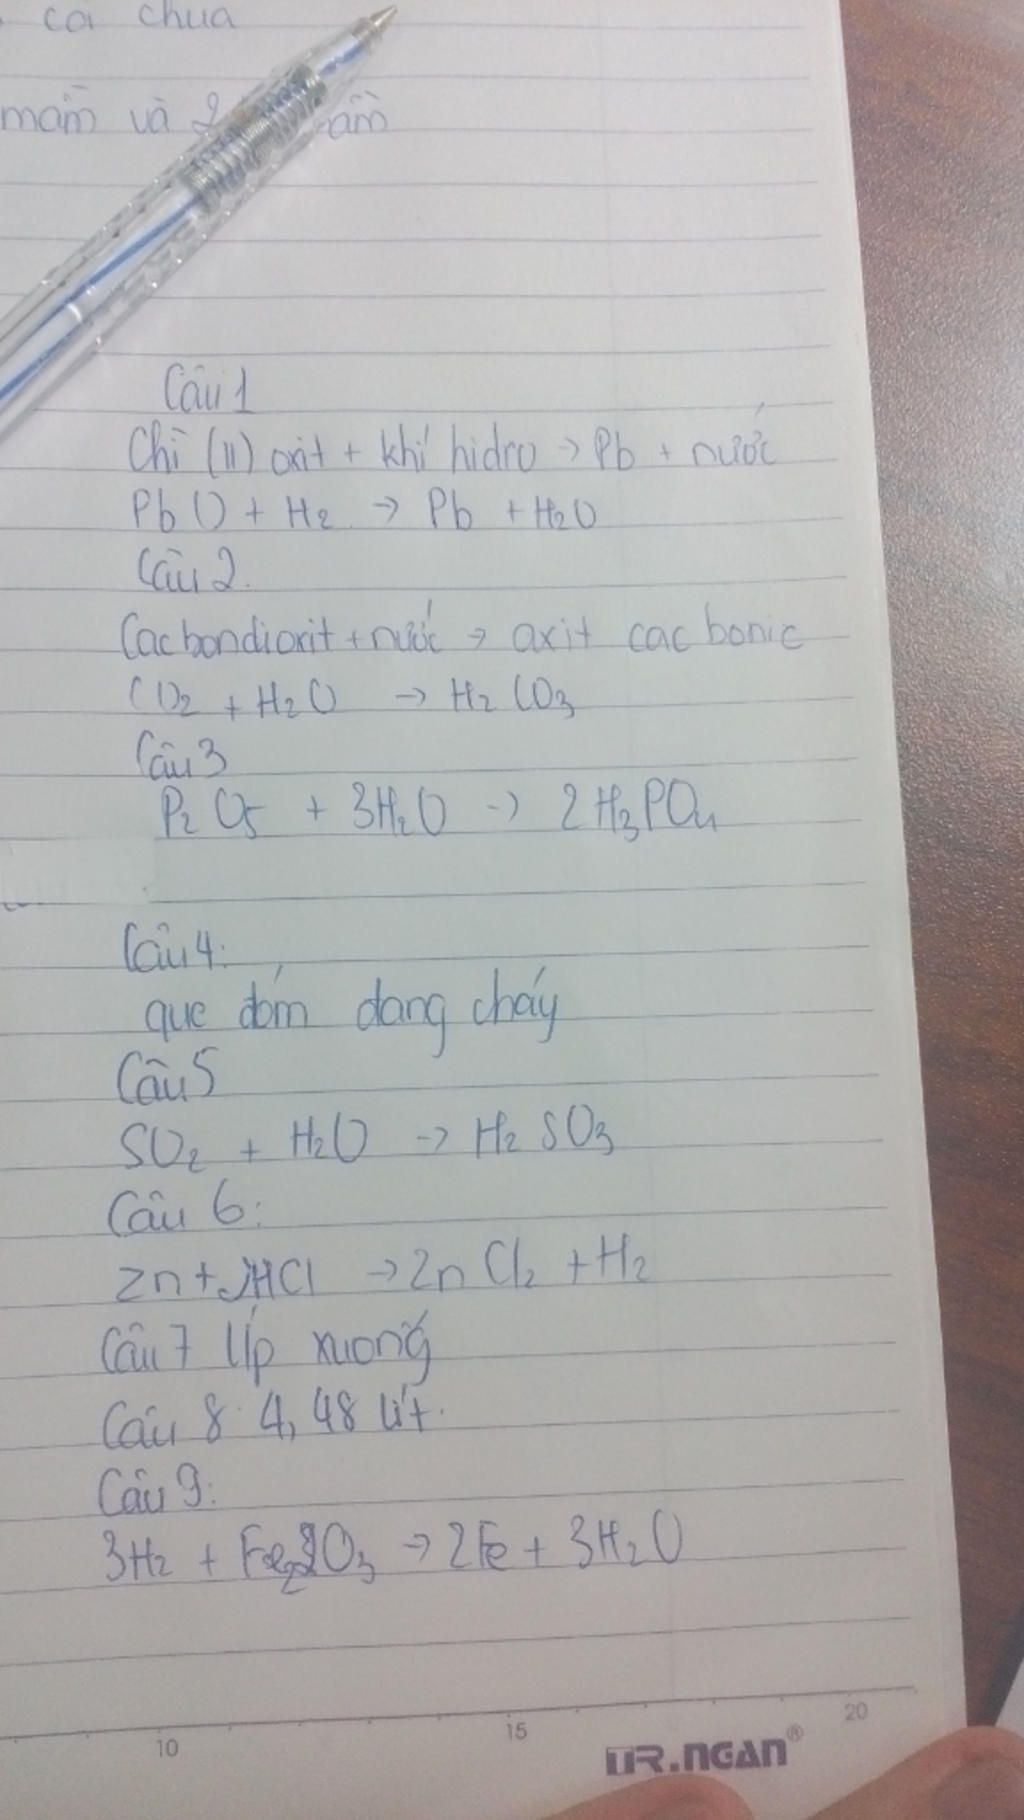 cà chua
mầm và 2 ầm
Câu 1
Chì (II) oxit + khí hidro → Pb + nước
PbO + H2 → Pb + H2O
Câu 2.
Cacbondioxit + nước → axit cacbonic
CO2 + H2O → H2CO3
Câu 3
P2O5 + 3H2O → 2H3PO4
Câu 4:
que đóm đang cháy
Câu 5
SO2 + H2O → H2SO3
Câu 6:
Zn + 2HCl → ZnCl2 + H2
Câu 7 Úp xuống
Câu 8: 4,48 lít.
Câu 9:
3H2 + Fe2O3 → 2Fe + 3H2O
10 15 20
TR.NGAN®